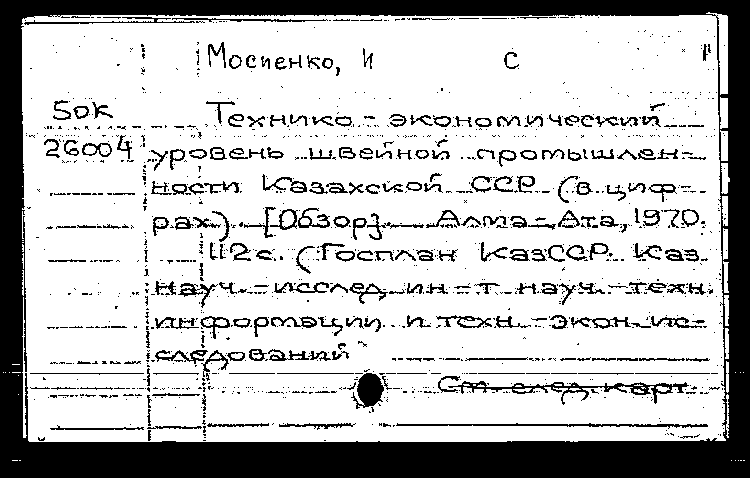 Мосиенко, И С
50к Технико-экономический
26004 уровень швейной промышлен-
ности Казахской ССР (в циф-
рах). [Обзор]. Алма-Ата, 1970.
112с. (Госплан КазССР. Каз.
науч.-исслед. ин-т науч.-техн.
информации и техн.-экон. ис-
следований
См. след. карт.